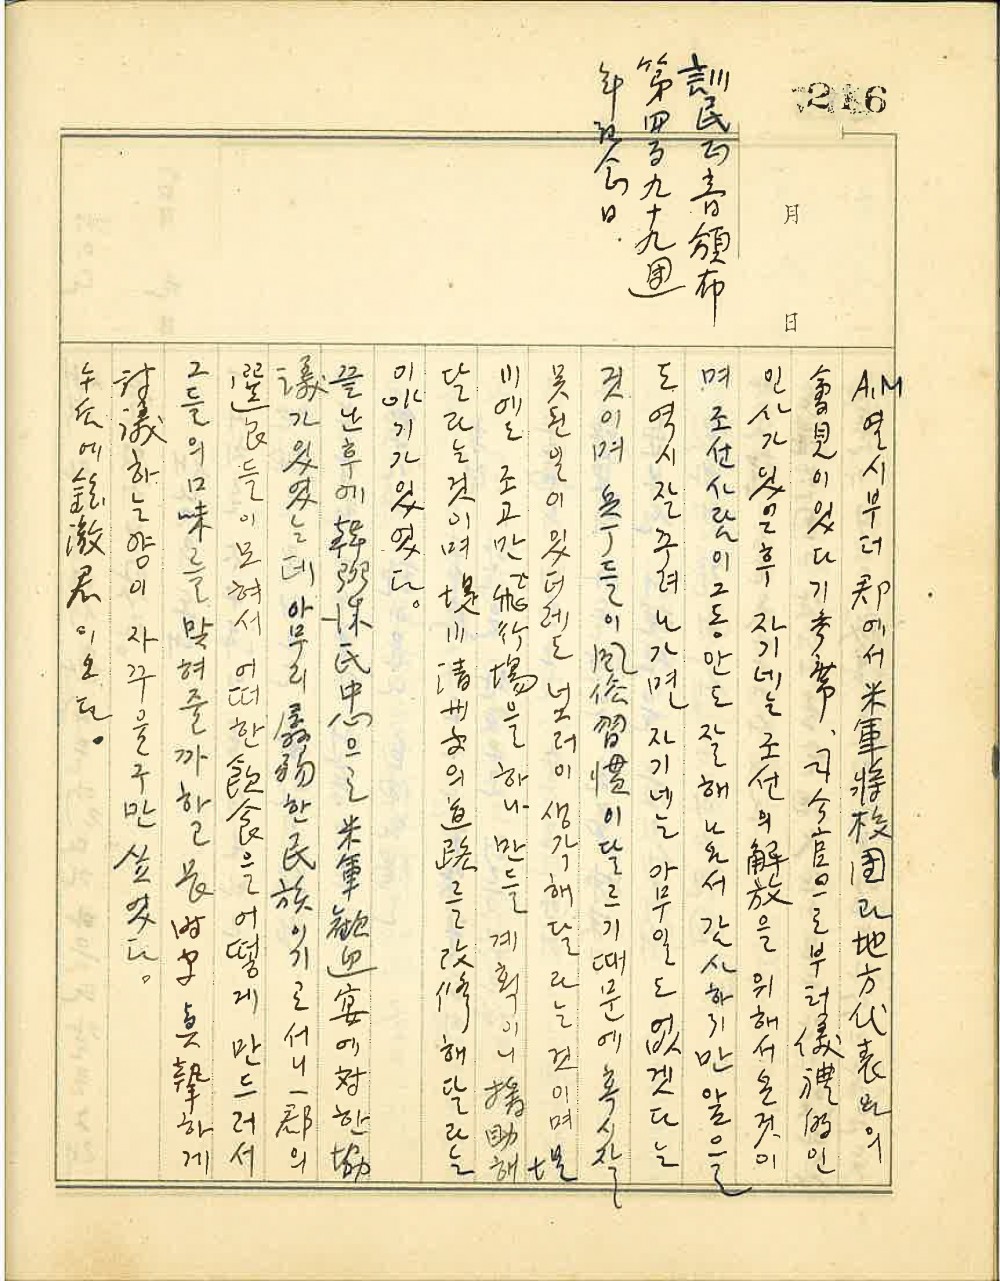 216
月
日
訓民正音頒布
第四百九十九週
年記念日.
A.M 열시부터 郡에서 米軍將校團과 地方代表와의
會見이 있었다 기奉帶、司令官으로부터 儀禮的인
인사가 있은후 자기네는 조선의 解放을 위해서 온것이
며 조선사람이 그동안도 잘해 나와서 감사하기만 앞으로
도 역시 잘 추려나가면 자기네는 아무일도 없겠다는
것이며 兵丁들이 風俗習慣이 달르기때문에 혹시 잘
못된일이 있더래도 널러이 생각해달라는 것이며 堤
川에도 조고만 飛行場을 하나 만들 계획이니 援助해
달라는것이며 堤川淸州間의 道路를 改修해달라는
이야기가 있었다。
끝난후에 韓弼洙氏中心으로 米軍歡迎宴에 対한 協
議가 있었는데 아무리 孱弱한民族이기로서니 一郡의
選良들이 모혀서 어떠한 飮食을 어떻게 만드러서
그들의 口味를 맞혀줄까 하고 長時間 眞摯하게
討議하는양이 자꾸 을구만 싶었다。
午后에 君이 오다。